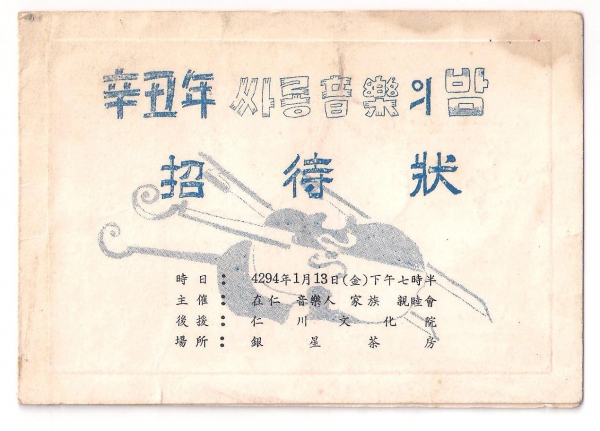 辛丑年 싸롱音樂의밤
招待狀
時日 : 4294年1月13日(金)下午七時半
主催 : 在仁 音樂人 家族 親睦會
後援 : 仁川文化院
場所 : 銀星茶房